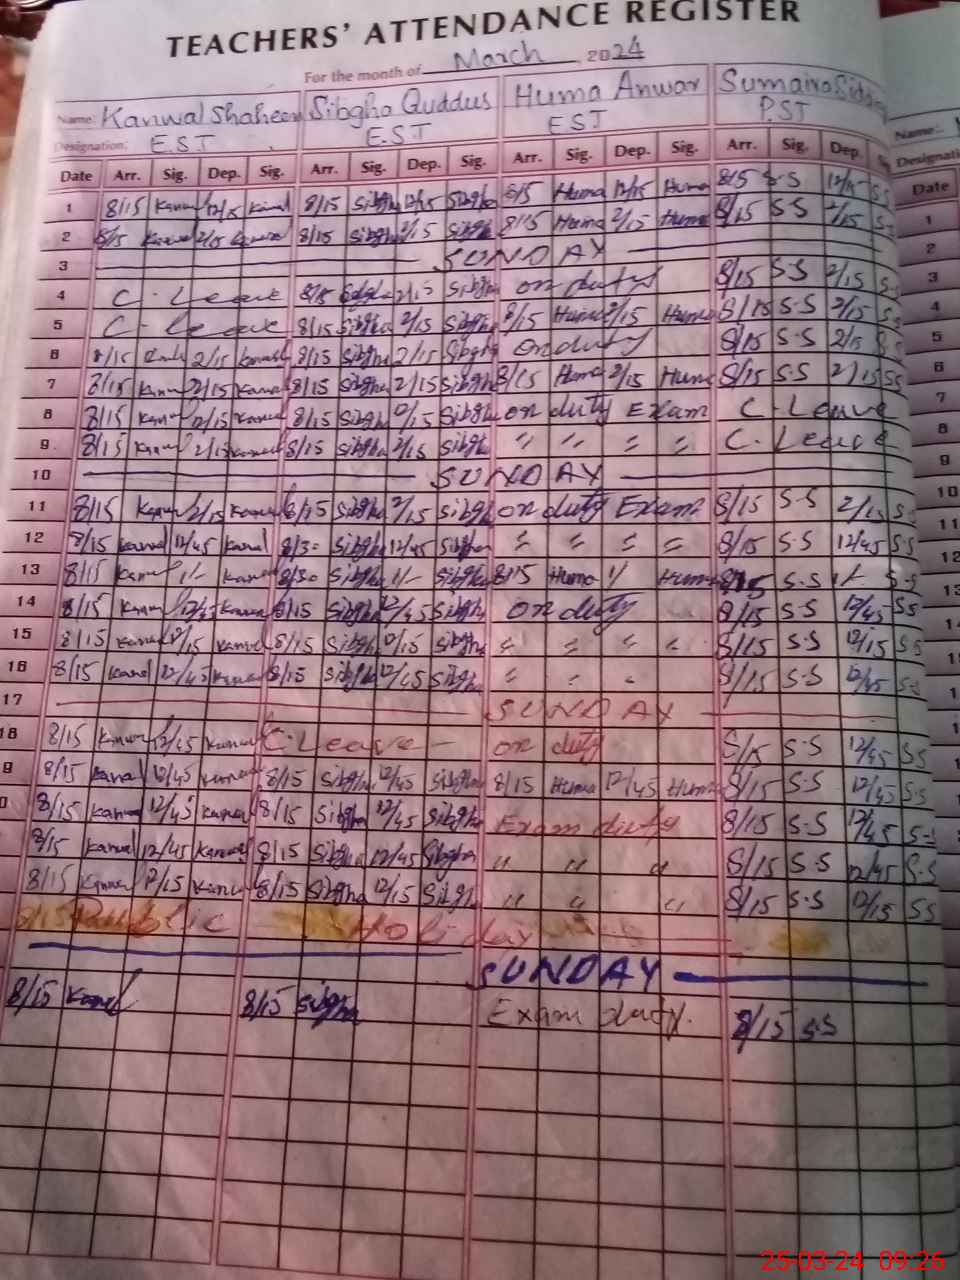 TEACHERS' ATTENDANCE REGISTER
For the month of March 2024
Name: Kanwal Shaheen Sibgha Quddus Huma Anwar Sumaira Name:
Designation: E.S.T E.S.T EST P.ST Designati
Date Arr. Sig. Dep. Sig. Arr. Sig. Dep. Sig. Arr. Sig. Dep. Sig. Arr. Sig. Dep. Date
1 8/15 12/15 Kanwal 8/15 Sibgha 12/15 Sibgha 8/15 Huma 12/15 Huma 8/15 S.S 12/15 SS 1
2 8/15 Kanwal 2/15 Kanwal 8/15 Sibgha 2/15 Sibgha 8/15 Huma 2/15 Huma 8/15 S S 2/15 S.S 2
3 SUNDAY 3
4 C. Leave 8/15 2/15 Sibgha on duty 8/15 S.S 2/15 S.S 4
5 C. Leave 8/15 Sibgha 2/15 Sibgha 8/15 Huma 2/15 Huma 8/15 S.S 2/15 S.S 5
6 8/15 2/15 Kanwal 8/15 Sibgha 2/15 Sibgha on duty 8/15 S.S 2/15 6
7 8/15 Kanwal 2/15 Kanwal 8/15 Sibgha 2/15 Sibgha 8/15 Huma 2/15 Huma 8/15 S.S 2/15 SS 7
8 8/15 Kanwal 12/15 Kanwal 8/15 Sibgha 12/15 Sibgha on duty Exam C. Leave 8
9 8/15 Kanwal 2/15 Kanwal 8/15 Sibgha 2/15 Sibgha " " " " C. Leave 9
10 SUNDAY 10
11 8/15 Kanwal 2/15 Kanwal 8/15 Sibgha 2/15 Sibgha on duty Exam 8/15 S.S 2/15 S.S 11
12 8/15 Kanwal 12/45 Kanwal 8/30 Sibgha 12/45 Sibgha " " " " 8/15 S.S 12/45 SS 12
13 8/15 Kanwal 1/- Kanwal 8/30 Sibgha 1/- Sibgha 8/15 Huma 1/ Huma 8/15 S.S 1/- S.S 13
14 8/15 Kanwal 12/45 Kanwal 8/15 Sibgha 12/45 Sibgha on duty 8/15 S S 12/45 SS
15 8/15 Kanwal 12/15 Kanwal 8/15 Sibgha 12/15 Sibgha " " " " 8/15 S S 12/15 S S
16 8/15 Kanwal 12/45 Kanwal 8/15 Sibgha 12/45 Sibgha " " " 8/15 S.S 12/45 S.S
17 SUNDAY
18 8/15 Kanwal 12/45 Kanwal C. Leave on duty 8/15 S.S 12/45 SS
9 8/15 Kanwal 12/45 Kanwal 8/15 Sibgha 12/45 Sibgha 8/15 Huma 12/45 Huma 8/15 S.S 12/45 S.S
0 8/15 Kanwal 12/45 Kanwal 8/15 Sibgha 12/45 Sibgha Exam duty 8/15 S.S 12/45 S.S
8/15 Kanwal 12/45 Kanwal 8/15 Sibgha 12/45 Sibgha " " " 8/15 S.S 12/45 S.S
8/15 Kanwal 12/15 Kanwal 8/15 Sibgha 12/15 Sibgha " " " 8/15 S.S 12/15 SS
8/15 Public Holiday
SUNDAY
8/15 Kanwal 8/15 Sibgha Exam duty. 8/15 S.S
25-03-24 09:26